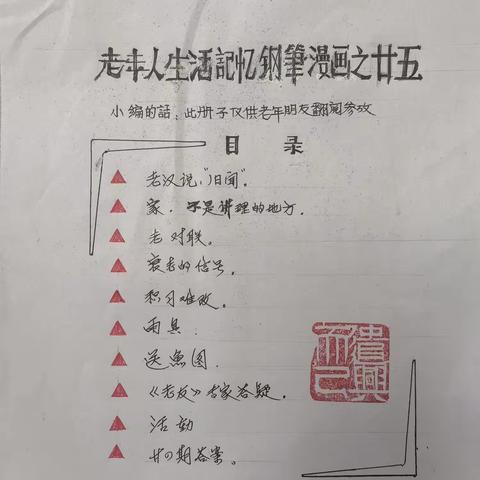 老年人生活記忆钢筆漫画之廿五
小编的話：此册子仅供老年朋友翻阅参攷
目 录
老汉说，"旧闻"。
家，不是讲理的地方。
老对联。
衰老的信号。
积习难改。
雨具.
送魚图.
《老友》专家答疑。
活动
廿四期答案。